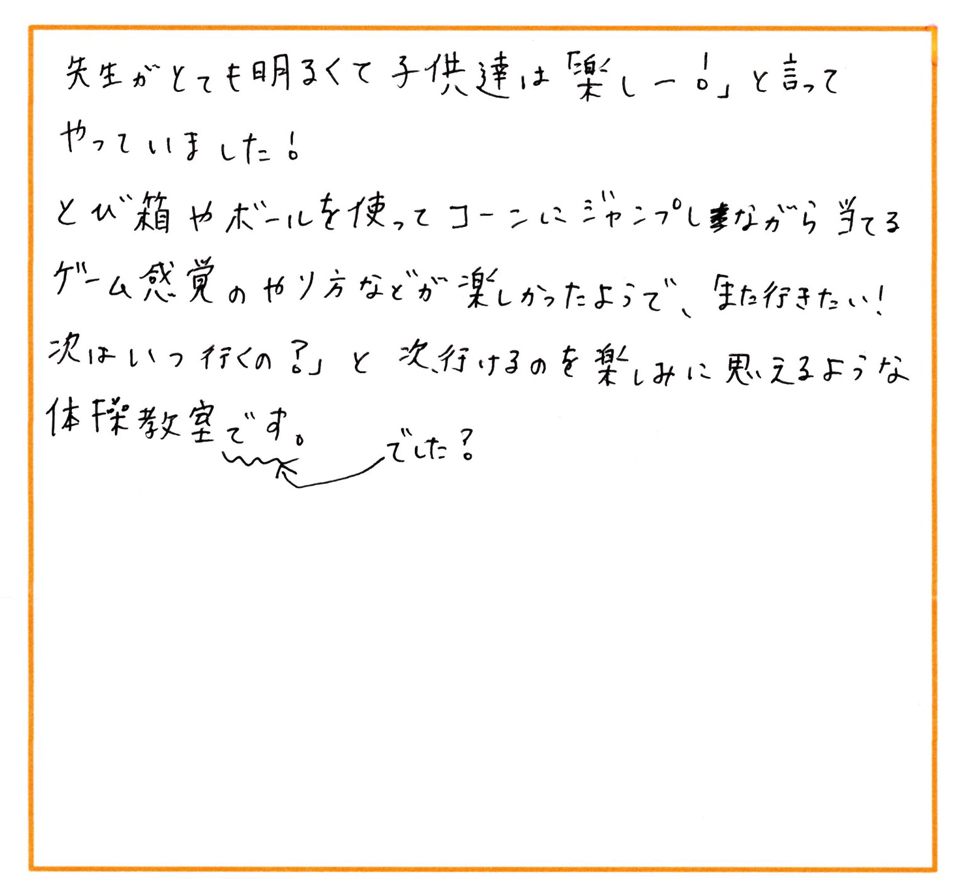 先生がとても明るくて子供達は「楽しー!」と言って
やっていました!
とび箱やボールを使ってコーンにジャンプしながら当てる
ゲーム感覚のやり方などが楽しかったようで、「また行きたい!
次はいつ行くの?」と次、行けるのを楽しみに思えるような
体操教室です。
でした?